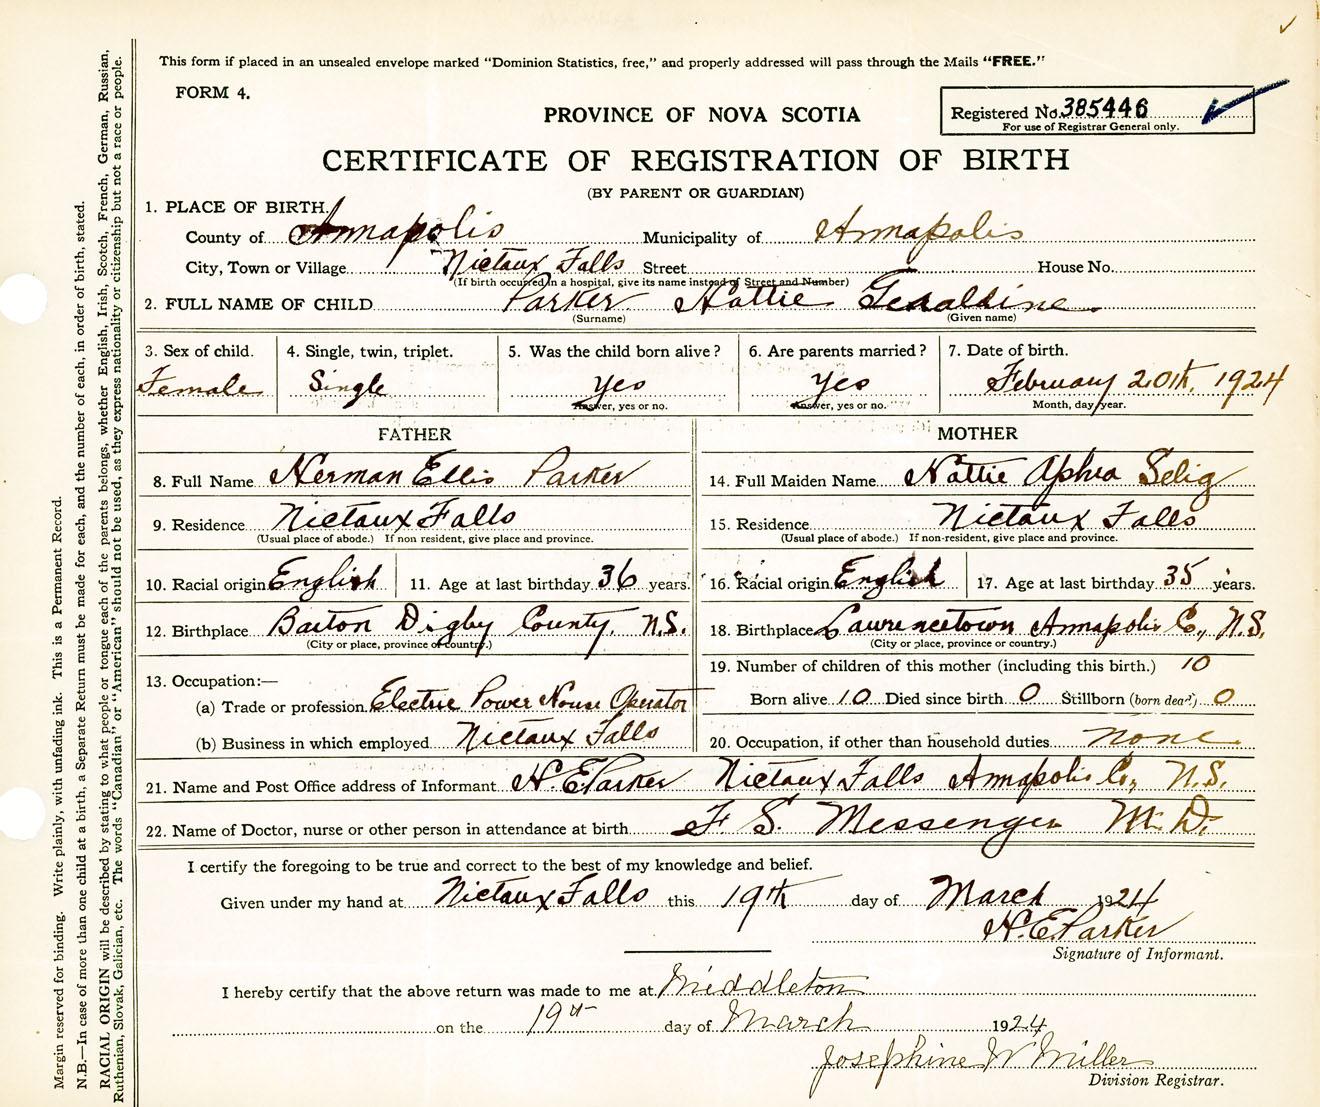 This form if placed in an unsealed envelope marked "Dominion Statistics, free," and properly addressed will pass through the Mails "FREE."
FORM 4.
PROVINCE OF NOVA SCOTIA
Registered No. 385446
For use of Registrar General only.
CERTIFICATE OF REGISTRATION OF BIRTH
(BY PARENT OR GUARDIAN)
1. PLACE OF BIRTH.
County of Annapolis Municipality of Annapolis
City, Town or Village Nictaux Falls Street House No.
(If birth occurred in a hospital, give its name instead of Street and Number)
2. FULL NAME OF CHILD Parker Hattie Geraldine
(Surname) (Given name)
3. Sex of child. 4. Single, twin, triplet. 5. Was the child born alive? 6. Are parents married? 7. Date of birth.
Female Single Yes Yes February 20th, 1924
Answer, yes or no. Answer, yes or no. Month, day, year.
FATHER MOTHER
8. Full Name Herman Ellis Parker 14. Full Maiden Name Hattie Aphra Selig
9. Residence Nictaux Falls 15. Residence Nictaux Falls
(Usual place of abode.) If non resident, give place and province. (Usual place of abode.) If non-resident, give place and province.
10. Racial origin English 11. Age at last birthday 36 years. 16. Racial origin English 17. Age at last birthday 35 years.
12. Birthplace Barton Digby County, N.S. 18. Birthplace Lawrencetown Annapolis Co., N.S.
(City or place, province or country.) (City or place, province or country.)
19. Number of children of this mother (including this birth.) 10
13. Occupation:—
(a) Trade or profession Electric Power House Operator Born alive 10 Died since birth 0 Stillborn (born dead) 0
(b) Business in which employed Nictaux Falls 20. Occupation, if other than household duties none
21. Name and Post Office address of Informant H. E. Parker Nictaux Falls Annapolis Co., N.S.
22. Name of Doctor, nurse or other person in attendance at birth F S. Messenger M. D.
I certify the foregoing to be true and correct to the best of my knowledge and belief.
Given under my hand at Nictaux Falls this 19th day of March 1924
H. E. Parker
Signature of Informant.
I hereby certify that the above return was made to me at Middleton
on the 19th day of March 1924
Josephine W Miller
Division Registrar.
Margin reserved for binding. Write plainly, with unfading ink. This is a Permanent Record.
N.B.—In case of more than one child at a birth, a Separate Return must be made for each, and the number of each, in order of birth, stated.
RACIAL ORIGIN will be described by stating to what people or tongue each of the parents belongs, whether English, Irish, Scotch, French, German, Russian,
Ruthenian, Slovak, Galician, etc. The words "Canadian" or "American" should not be used, as they express nationality or citizenship but not a race or people.